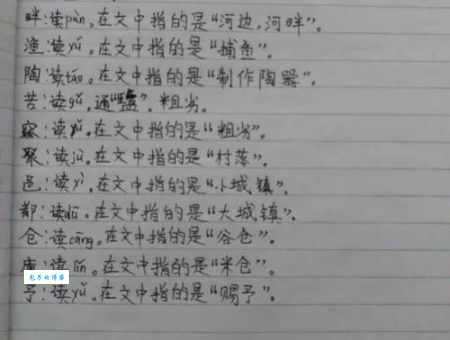 畔:读pàn。在文中指的是“河边,河畔”。
渔:读yú。在文中指的是“捕鱼”。
陶:读táo。在文中指的是“制作陶器”。
苦:读gǔ,通“盬”,粗劣。
窳:读yǔ。在文中指的是“粗劣”。
聚:读jù。在文中指的是“村落”。
邑:读yì。在文中指的是“小城镇”。
都:读dū。在文中指的是“大城镇”。
仓:读cāng。在文中指的是“谷仓”。
廪:读lǐn。在文中指的是“米仓”。
包子的博客
予:读yǔ。在文中指的是“赐予”。